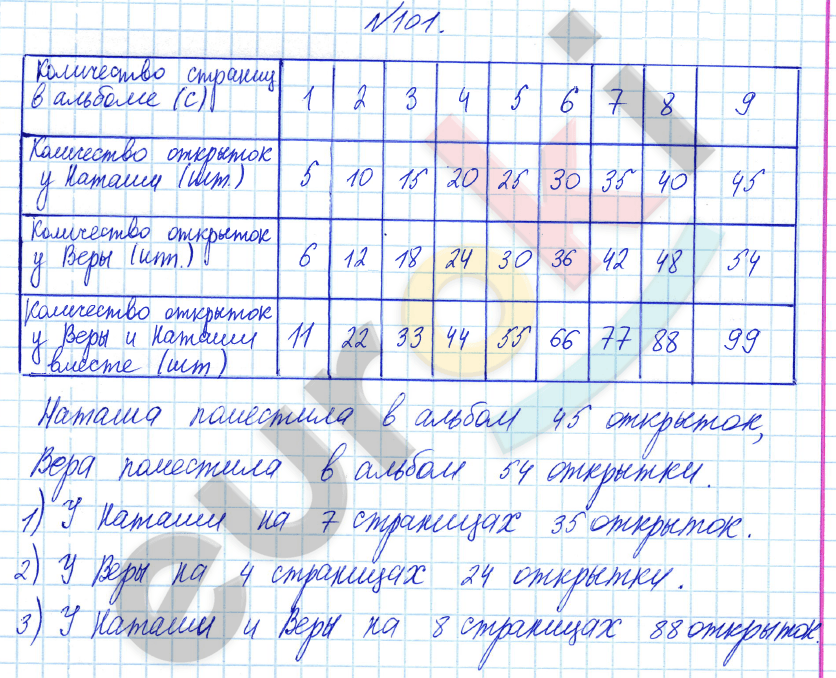 №101.
Количество страниц
в альбоме (с) 1 2 3 4 5 6 7 8 9
Количество открыток
у Наташи (шт.) 5 10 15 20 25 30 35 40 45
Количество открыток
у Веры (шт.) 6 12 18 24 30 36 42 48 54
Количество открыток
у Веры и Наташи 11 22 33 44 55 66 77 88 99
вместе (шт)
Наташа поместила в альбом 45 открыток,
Вера поместила в альбом 54 открытки.
1) У Наташи на 7 страницах 35 открыток.
2) У Веры на 4 страницах 24 открытки.
3) У Наташи и Веры на 8 страницах 88 открыток.
euroki